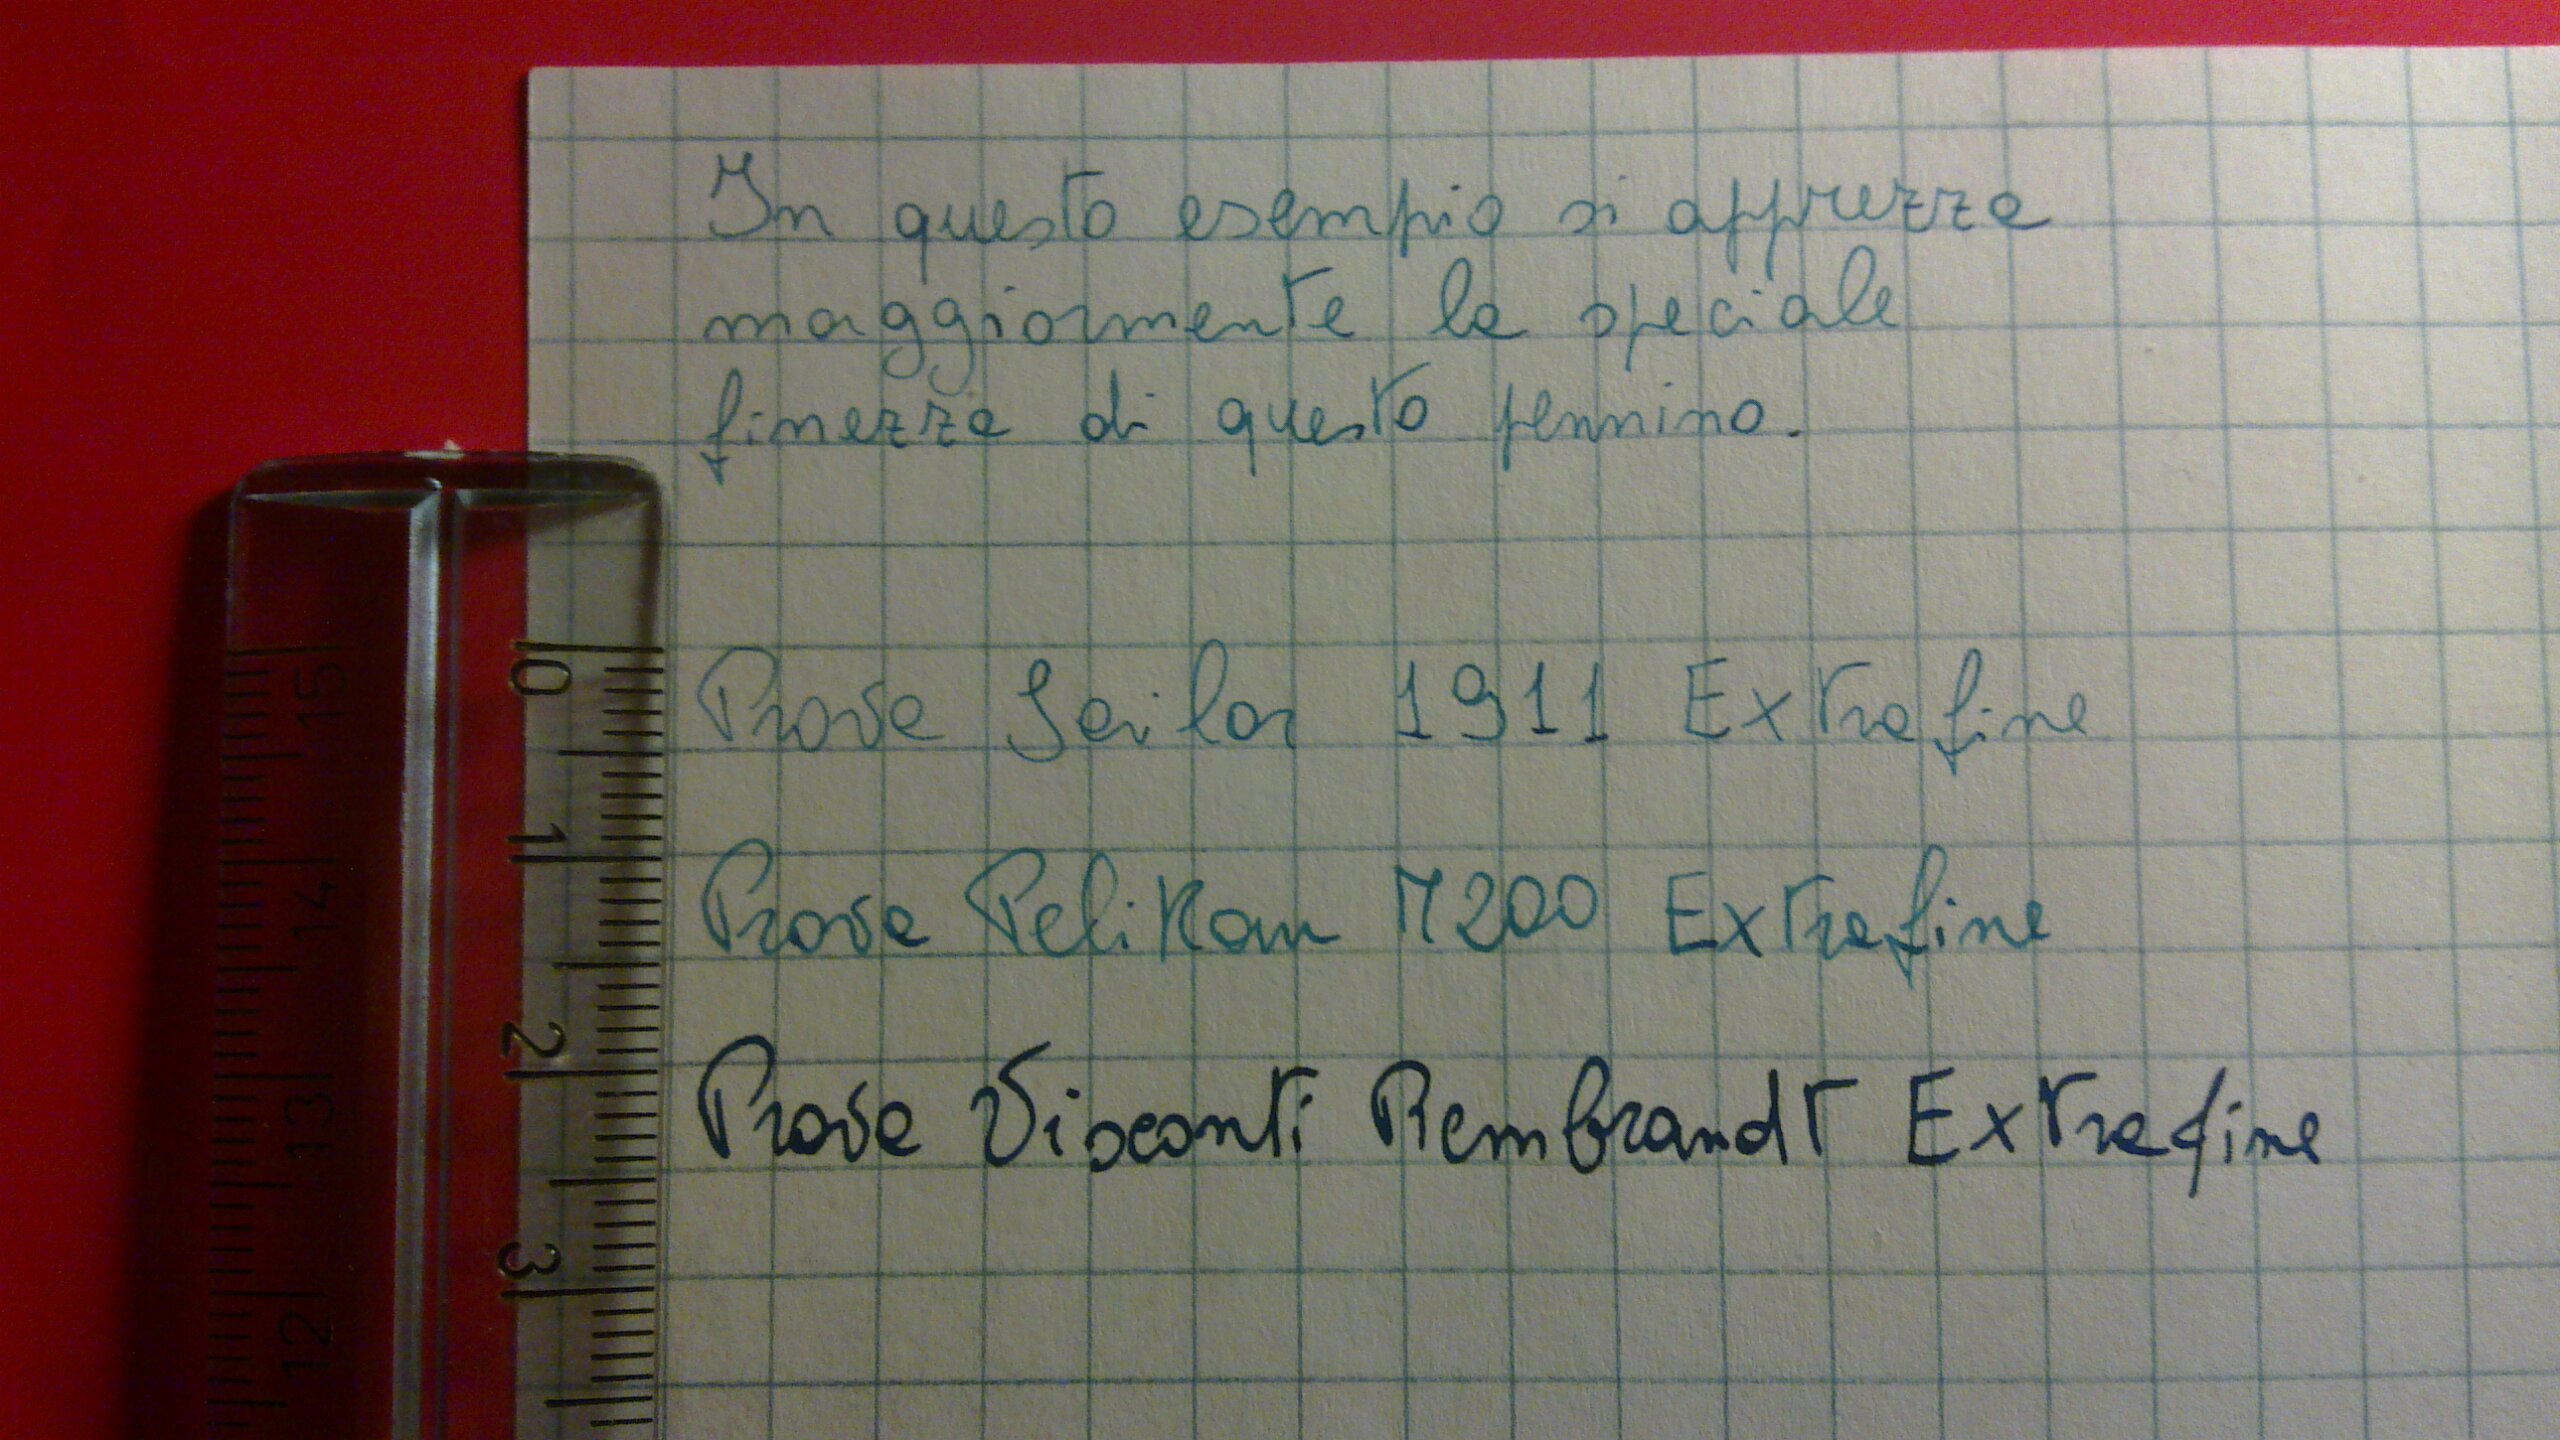 In questo esempio si apprezza
maggiormente la speciale
finezza di questo pennino.
Prova Sailor 1911 Extrafine
Prova Pelikan M200 Extrafine
Prova Visconti Rembrandt Extrafine
0
1
2
3
15
14
13
12